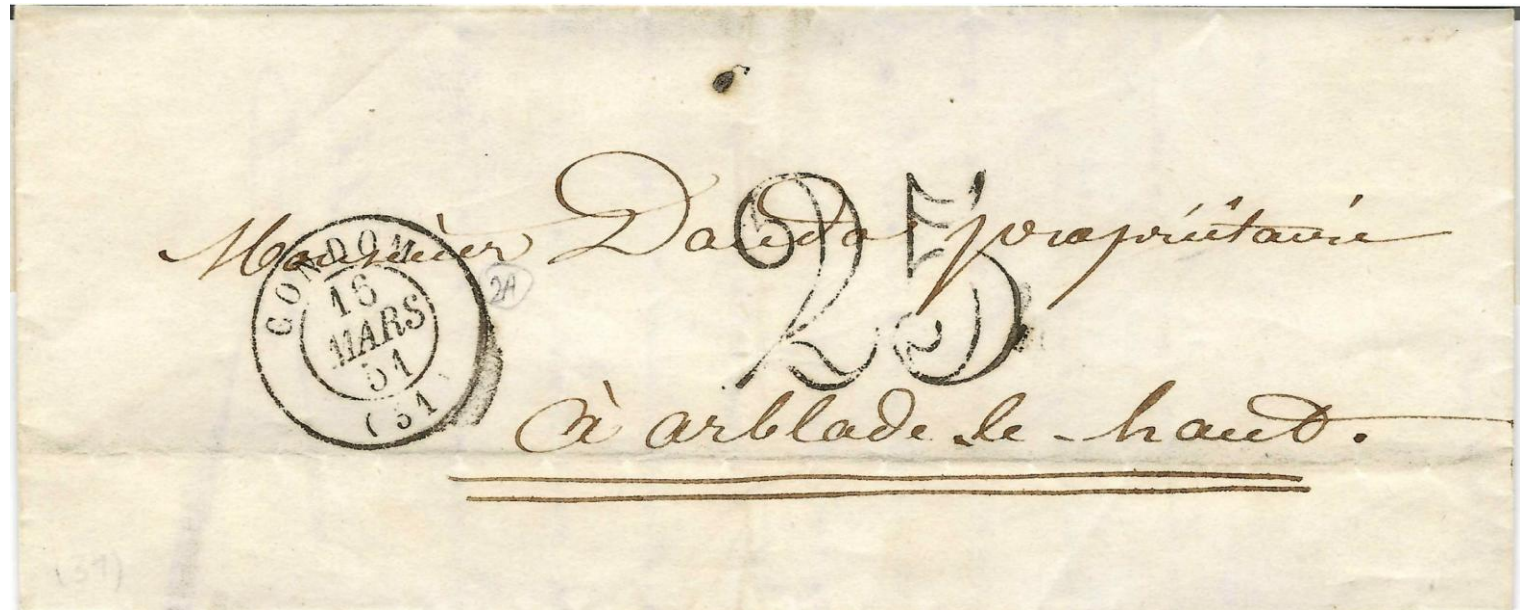 Monsieur propriétaire
25
CONDOM
16
MARS
51
(31
2A
à arblade le haut.
(31)